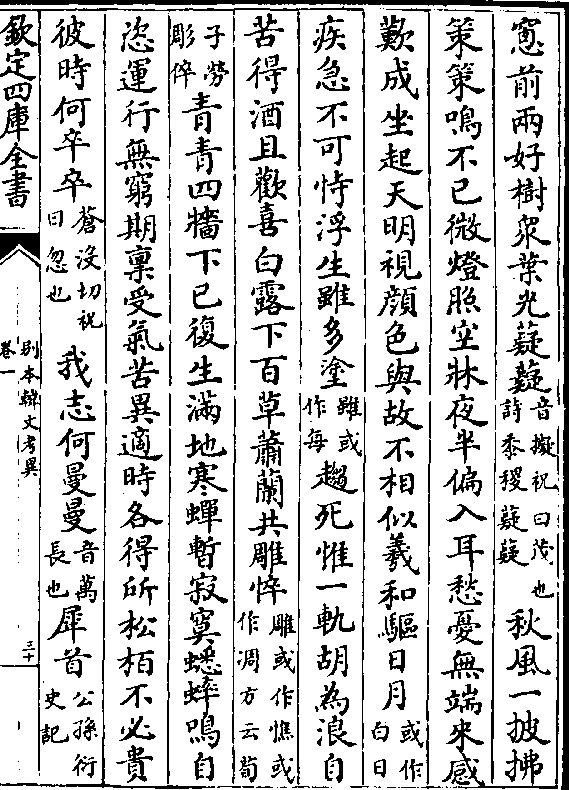 窻前兩好樹衆葉光薿薿音擬祝曰茂也詩黍稷薿薿秋風一披拂
策策鳴不已微燈照空牀夜半偏入耳愁憂無端來感
歎成坐起天明視顔色與故不相似羲和驅日月或作白日
疾急不可恃浮生雖多塗雖或作每趨死惟一軌胡為浪自
苦得酒且歡喜白露下百草蕭蘭共雕悴雕或作憔或作凋方云荀
子勞彫倅青青四牆下已復生滿地寒蟬暫寂寞蟋蟀鳴自
恣運行無窮期稟受氣苦異適時各得所松栢不必貴
彼時何卒卒蒼沒切祝曰忽也我志何曼曼音萬長也犀首公孫衍史記
欽定四庫全書
别本韓文考異
卷一
三十